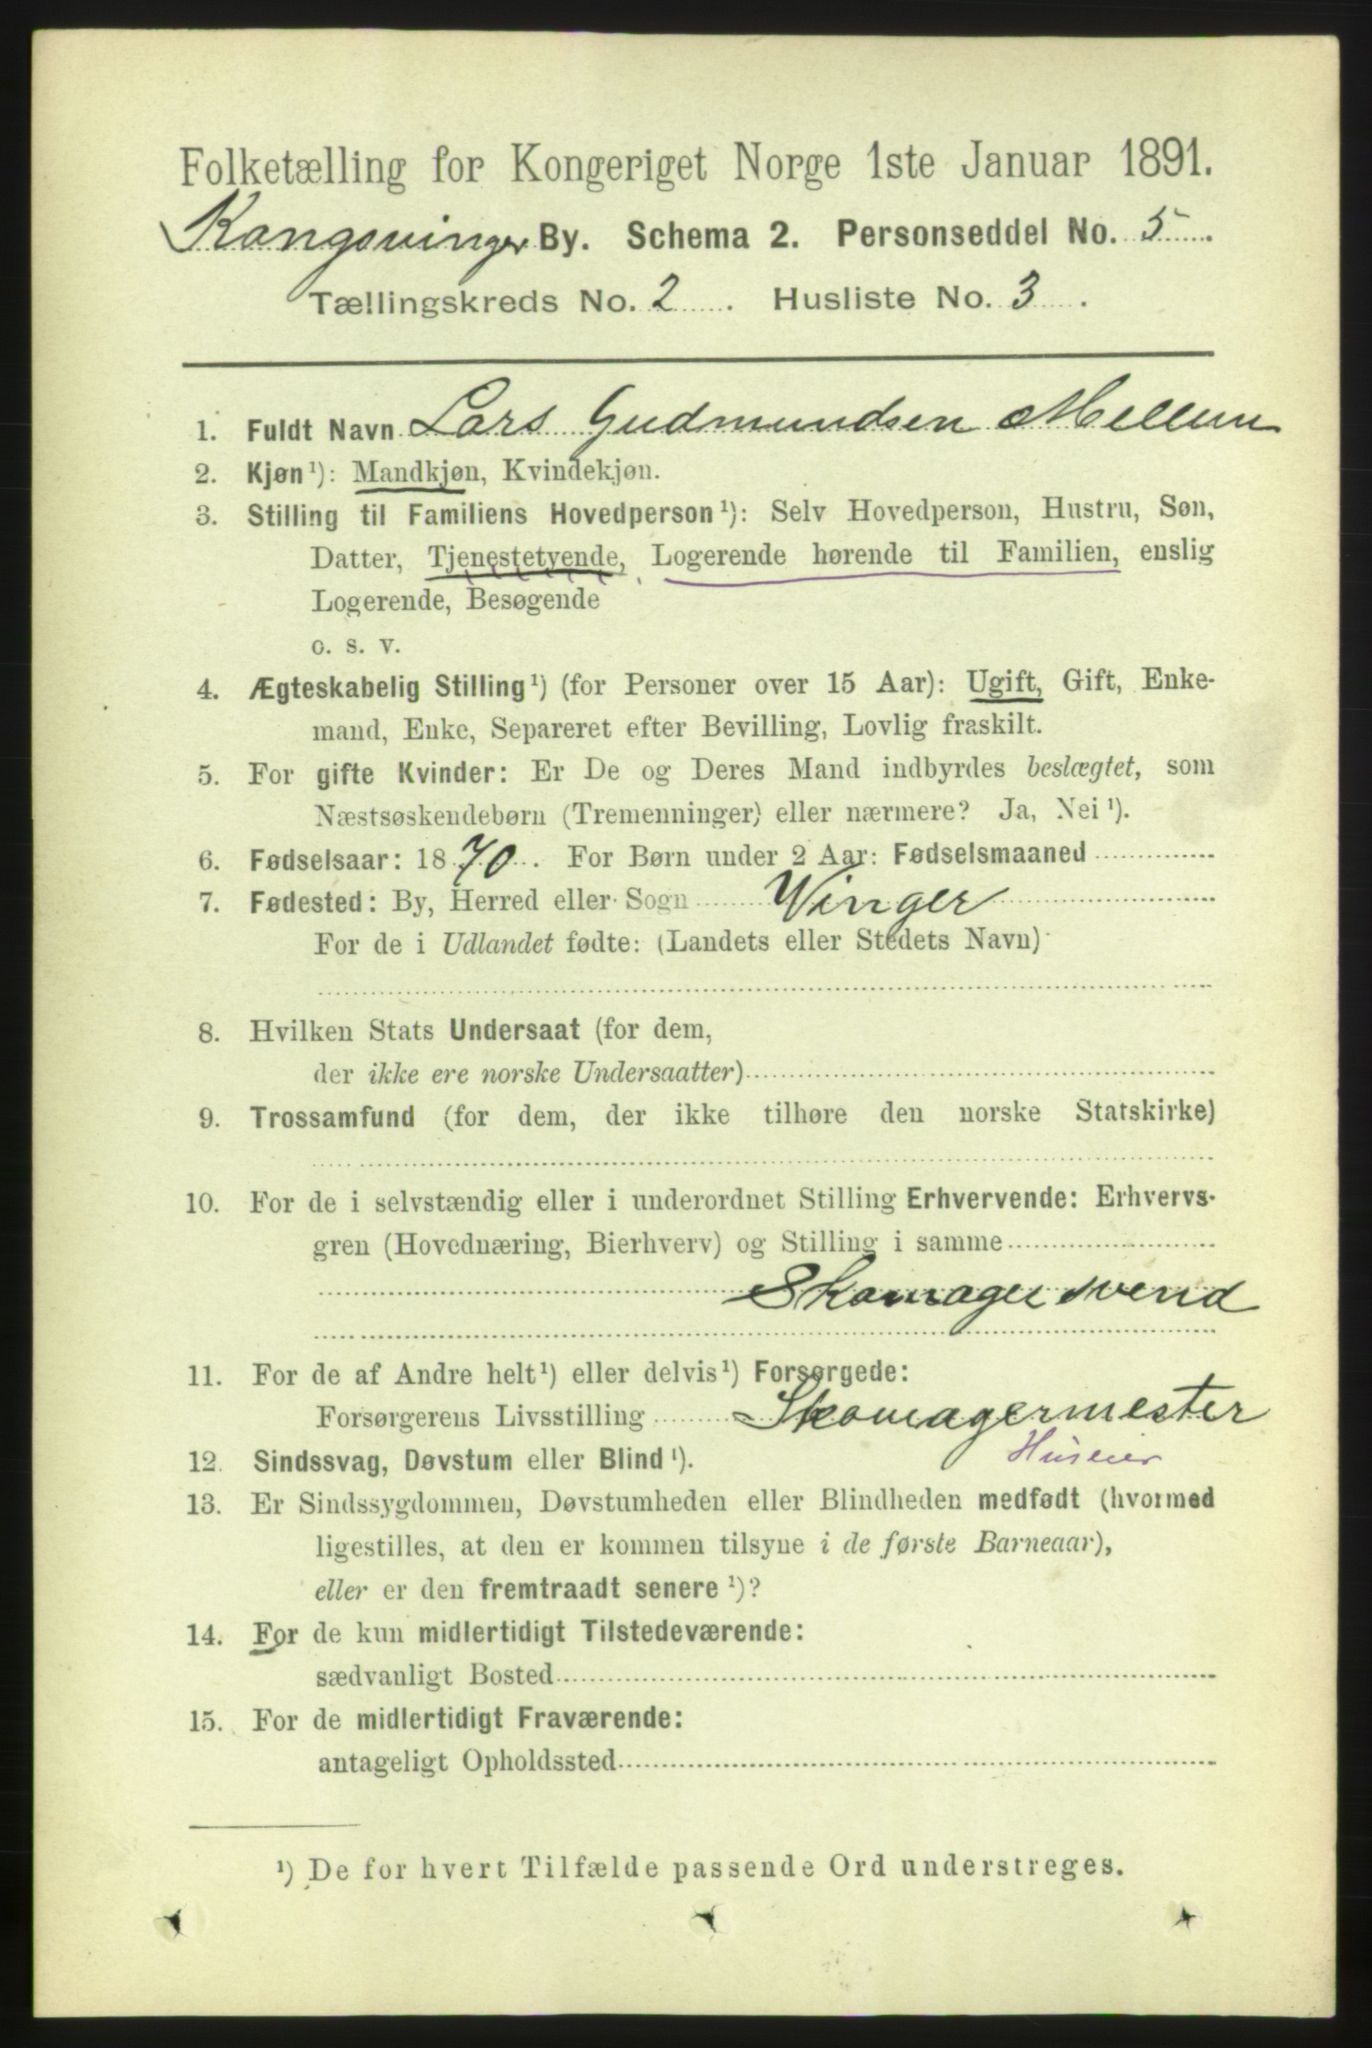 Folketælling for Kongeriget Norge 1ste Januar 1891.
Kongsvinger By. Schema 2. Personseddel No. 5
Tællingskreds No. 2. Husliste No. 3.
1. Fuldt Navn Lars Gudmundsen Mellem
2. Kjøn¹): Mandkjøn, Kvindekjøn.
3. Stilling til Familiens Hovedperson¹): Selv Hovedperson, Hustru, Søn,
Datter, Tjenestetyende, Logerende hørende til Familien, enslig
Logerende, Besøgende
o. s. v.
4. Ægteskabelig Stilling¹) (for Personer over 15 Aar): Ugift, Gift, Enke-
mand, Enke, Separeret efter Bevilling, Lovlig fraskilt.
5. For gifte Kvinder: Er De og Deres Mand indbyrdes beslægtet, som
Næstsøskendebørn (Tremenninger) eller nærmere? Ja, Nei¹).
6. Fødselsaar: 1870. For Børn under 2 Aar: Fødselsmaaned
7. Fødested: By, Herred eller Sogn Winger
For de i Udlandet fødte: (Landets eller Stedets Navn)
8. Hvilken Stats Undersaat (for dem,
der ikke ere norske Undersaatter)
9. Trossamfund (for dem, der ikke tilhøre den norske Statskirke)
10. For de i selvstændig eller i underordnet Stilling Erhvervende: Erhvervs-
gren (Hovednæring, Bierhverv) og Stilling i samme
Skomagersvend
11. For de af Andre helt¹) eller delvis¹) Forsørgede:
Forsørgerens Livsstilling Skomagermester
Huseier
12. Sindssvag, Døvstum eller Blind¹).
13. Er Sindssygdommen, Døvstumheden eller Blindheden medfødt (hvormed
ligestilles, at den er kommen tilsyne i de første Barneaar),
eller er den fremtraadt senere¹)?
14. For de kun midlertidigt Tilstedeværende:
sædvanligt Bosted
15. For de midlertidigt Fraværende:
antageligt Opholdssted
¹) De for hvert Tilfælde passende Ord understreges.